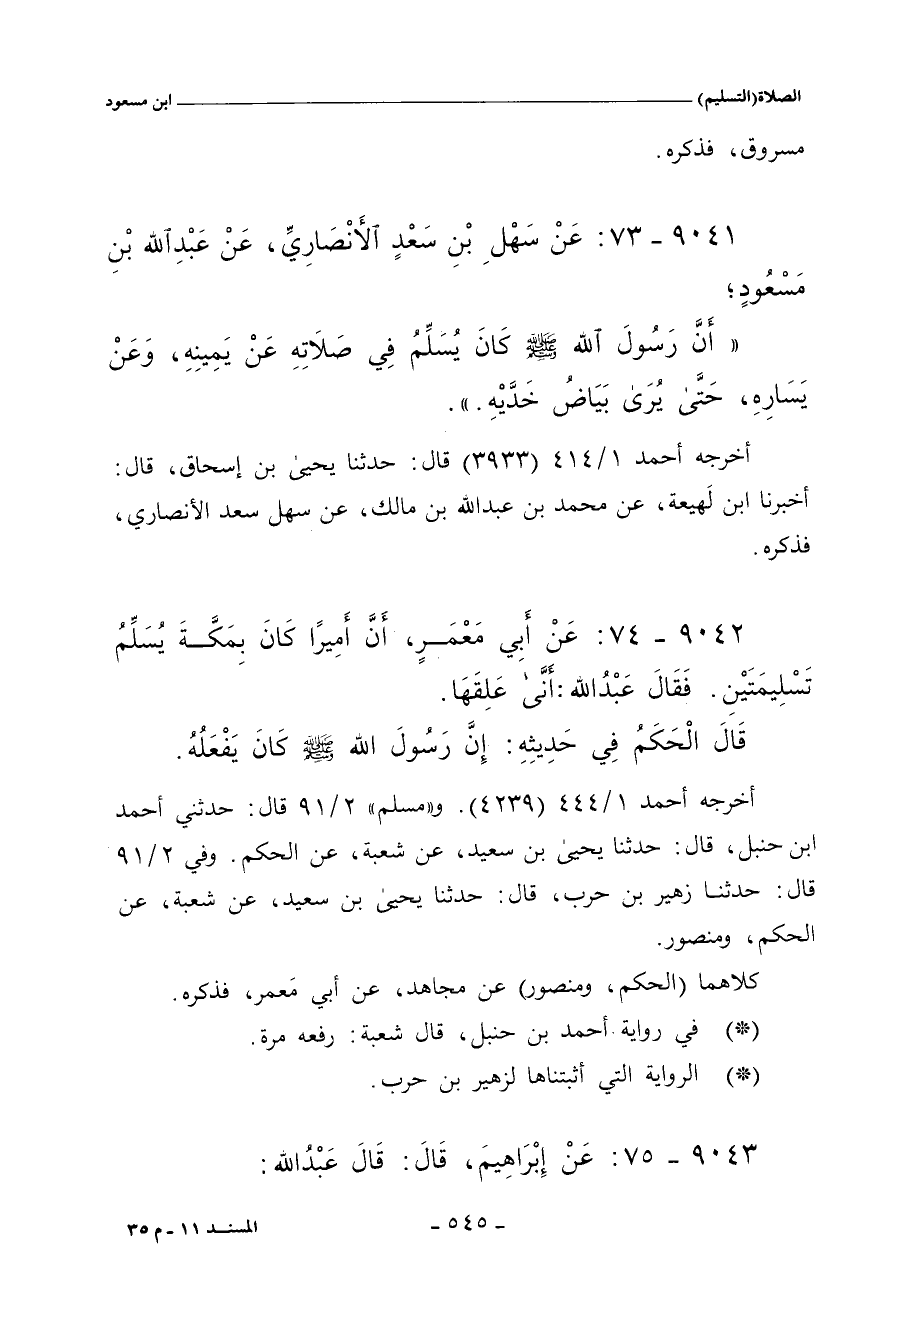 الصلاة(التسليم) ــــــــــــــــــــــــــــــــــــــــــــــ ابن مسعود
مسروق، فذكره.
٩٠٤١ - ٧٣: عَنْ سَهْلِ بْنِ سَعْدٍ ٱلْأَنْصَارِيِّ، عَنْ عَبْدِٱللهِ بْنِ
مَسْعُودٍ؛
« أَنَّ رَسُولَ ٱللهِ ﷺ كَانَ يُسَلِّمُ فِي صَلَاتِهِ عَنْ يَمِينِهِ، وَعَنْ
يَسَارِهِ، حَتَّىٰ يُرَىٰ بَيَاضُ خَدَّيْهِ.».
أخرجه أحمد ٤١٤/١ (٣٩٣٣) قال: حدثنا يحيىٰ بن إسحاق، قال:
أخبرنا ابن لَهيعة، عن محمد بن عبدالله بن مالك، عن سهل سعد الأنصاري،
فذكره.
٩٠٤٢ - ٧٤: عَنْ أَبِي مَعْمَـــرٍ، أَنَّ أَمِيرًا كَانَ بِمَكَّـــةَ يُسَلِّمُ
تَسْلِيمَتَيْنِ. فَقَالَ عَبْدُالله: أَنَّىٰ عَلِقَهَا.
قَالَ الْحَكَمُ فِي حَدِيثِهِ: إِنَّ رَسُولَ اللهِ ﷺ كَانَ يَفْعَلُهُ.
أخرجه أحمد ٤٤٤/١ (٤٢٣٩). و«مسلم» ٩١/٢ قال: حدثني أحمد
ابن حنبل، قال: حدثنا يحيىٰ بن سعيد، عن شعبة، عن الحكم. وفي ٩١/٢
قال: حدثنـا زهير بن حرب، قال: حدثنا يحيىٰ بن سعيد، عن شعبة، عن
الحكم، ومنصور.
كلاهما (الحكم، ومنصور) عن مجاهد، عن أبي مَعمر، فذكره.
(*) في رواية أحمد بن حنبل، قال شعبة: رفعه مرة.
(*) الرواية التي أثبتناها لزهير بن حرب.
٩٠٤٣ - ٧٥: عَنْ إِبْرَاهِيمَ، قَالَ: قَالَ عَبْدُالله:
- ٥٤٥ - المسنـد ١١ - م ٣٥